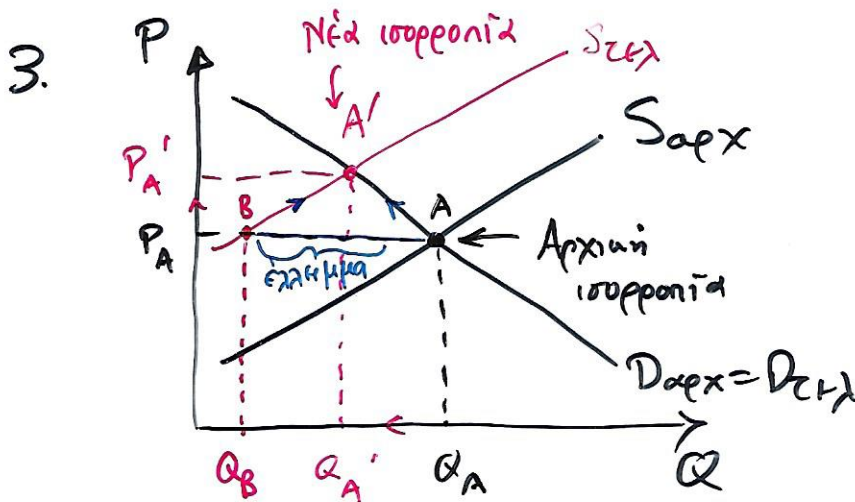 3.
P
Νέα ισορροπία
Sτελ
A'
Sαρχ
P_A'
B
A
P_A
έλλειμμα
Αρχική
ισορροπία
Dαρχ = Dτελ
Q_B
Q_A'
Q_A
Q